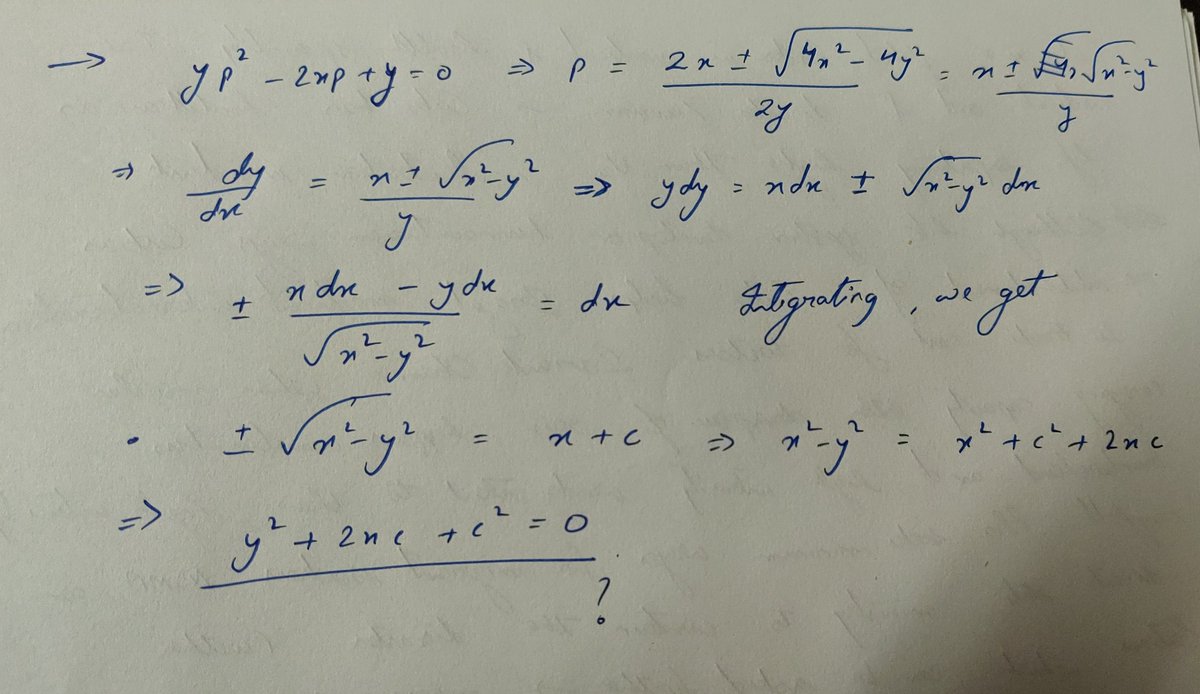 → yp² - 2xp + y = 0 ⇒ p = (2x ± √(4x² - 4y²))/2y = (x ± √(x² - y²))/y
⇒ dy/dx = (x ± √(x² - y²))/y ⇒ ydy = xdx ± √(x² - y²) dx
=> ± (xdx - ydx)/√(x² - y²) = dx Integrating, we get
· ± √(x² - y²) = x + c ⇒ x² - y² = x² + c² + 2xc
=> y² + 2xc + c² = 0
?